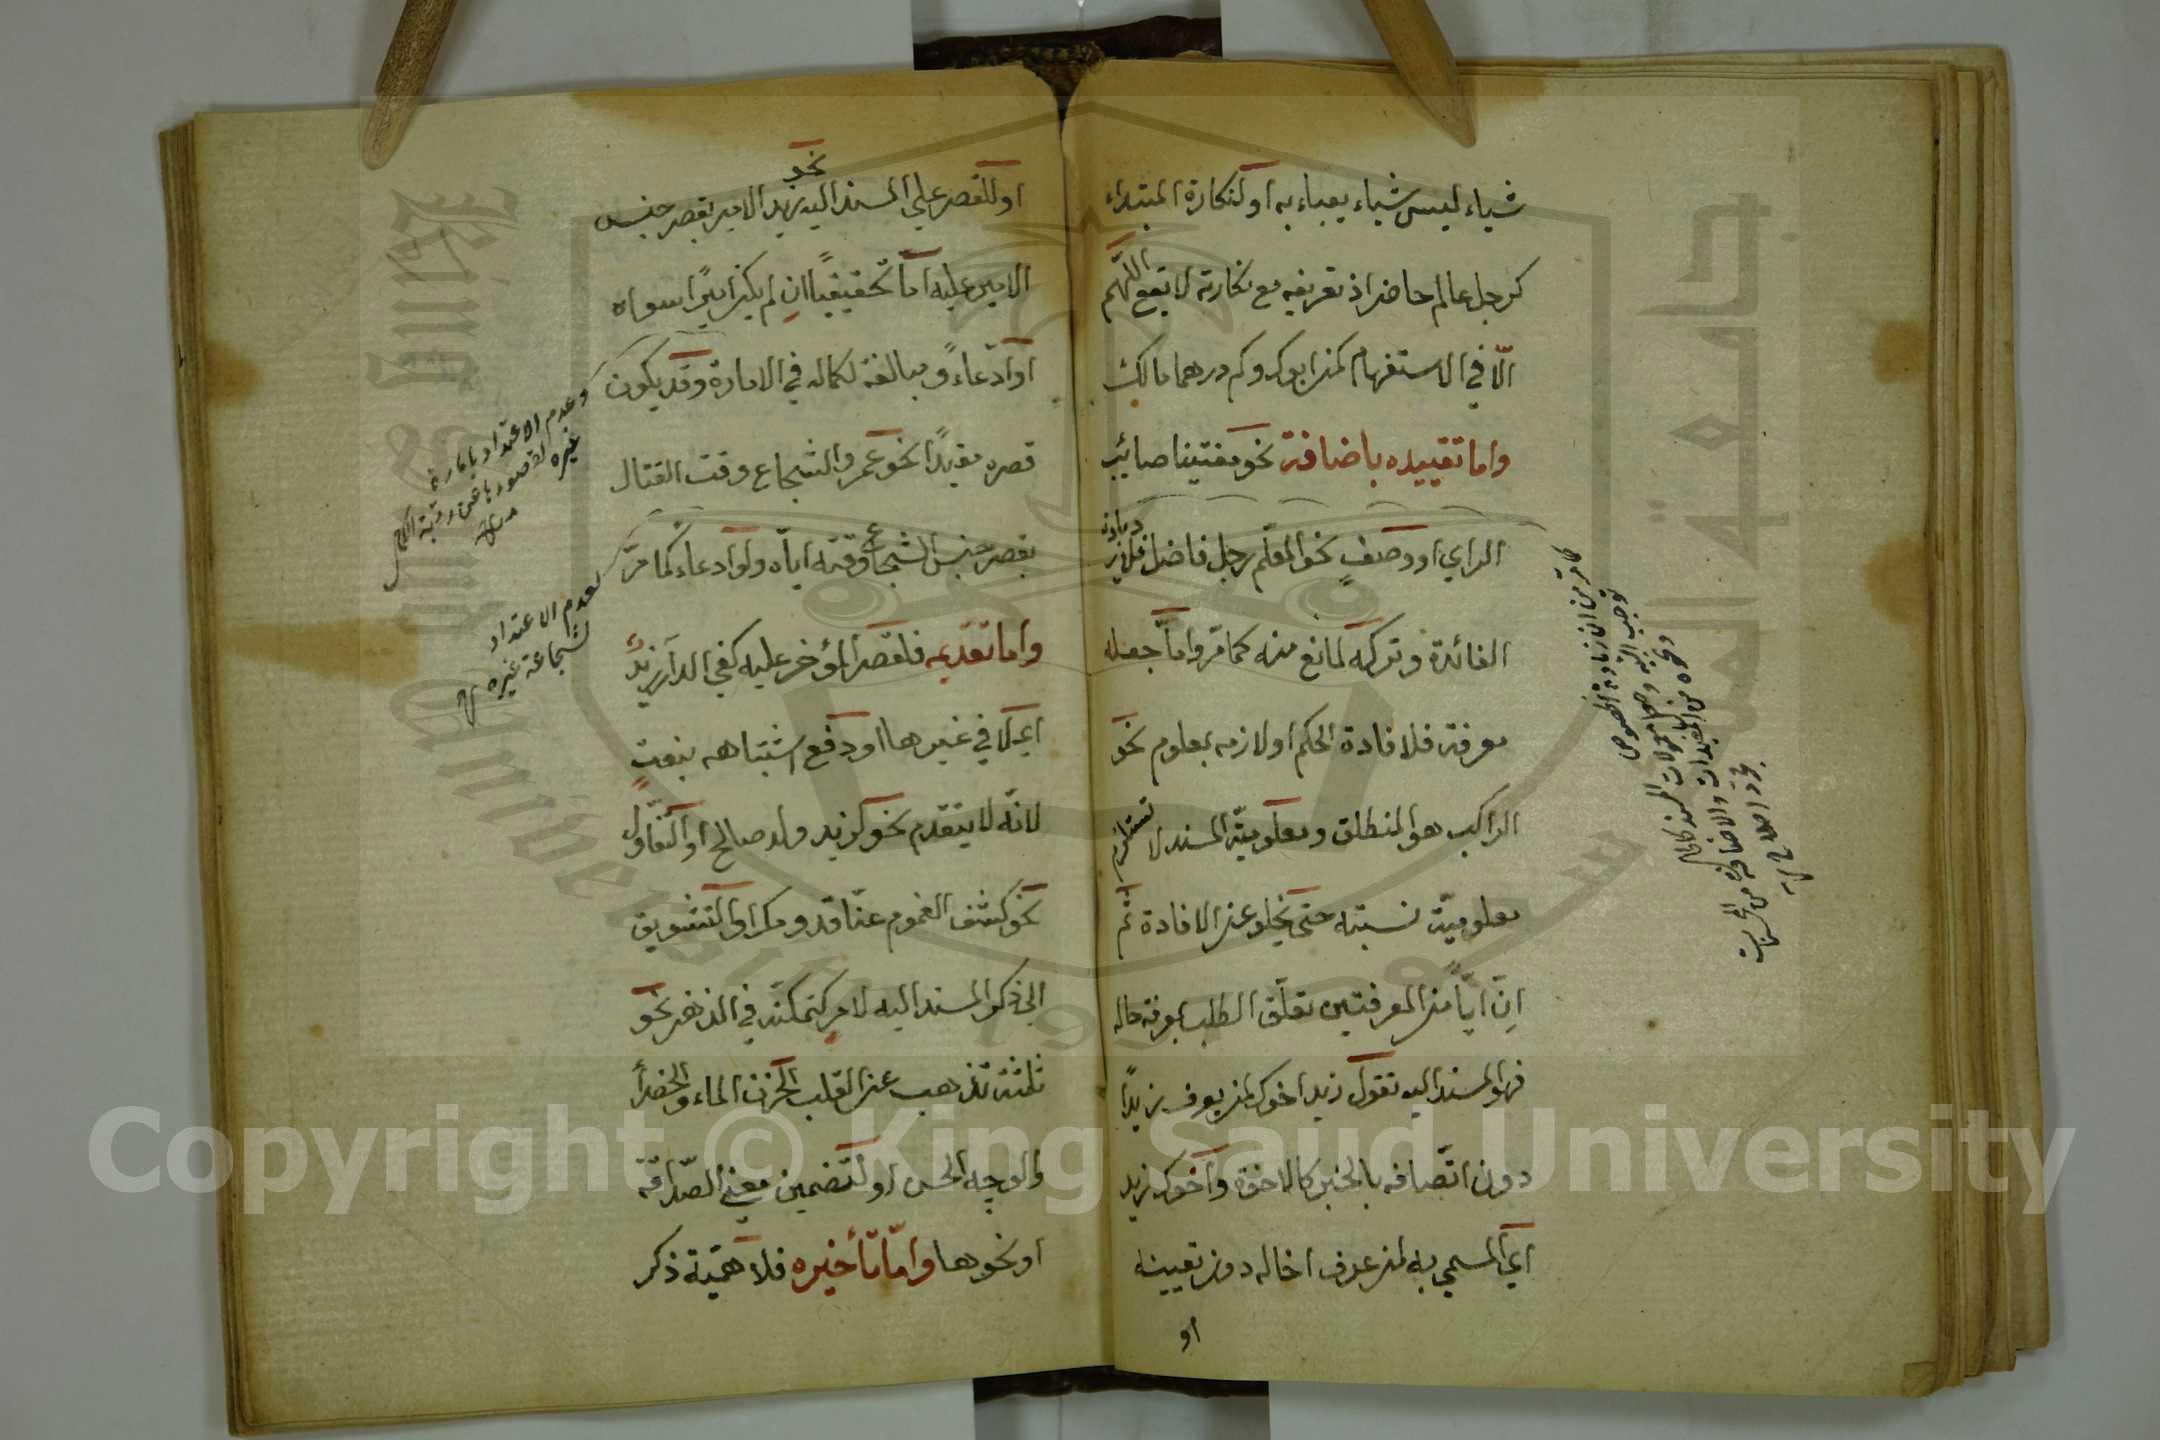 شياء ليس شياء يعباء به او لنكارة المبتداء
كرجل عالم حاضر اذ تعريفه مع نكارته لا يقع اللهم
الّا في الاستفهام كمن ابوك وكم درهما مالك
واما تقييده باضافة نحو مفتينا صائب
الراي او وصفٍ نحو المعلّم رجل فاضل فلزيادة
الفائدة وتركه لمانع منه كما مرّ واما جعله
معرفة فلافادة الحكم او لازمه بمعلوم نحو
الراكب هو المنطلق ومعلوميّة المسند لا تستلزم
معلوميّة نسبته حتى يخلو عن الافادة ثم
انّ ايّا من المعرفتين تعلّق الطلب بمعرفة حاله
فهو المسند اليه تقول زيد اخوك لمن يعرف زيدًا
دون اتّصافه بالخبر كالاخوة واخوك زيد
اي المسمى به لمن عرف اخا له دون تعيينه
او
او للقصر على المسند اليه نحو زيد الامير بقصر جنس
الامير عليه امّا تحقيقيًا ان لم يكن اميرًا سواه
او ادّعاءً ومبالغة لكماله في الامارة وقد يكون
قصره مقيدًا نحو عمرو الشجاع وقت القتال
بقصر جنس الشجاع وقته اياه ولو ادعاء كما مرّ
واما تقديمه فلقصر المؤخر عليه كفي الدار زيدٌ
اي لا في غيرها او دفع اشتباهه بنعتٍ
لانّه لا يتقدم نحو كزيد ولد صالح او التفاؤل
نحو كشف الغموم عنّا قدومك او التشويق
الى ذكر المسند اليه لامرٍ كتمكّنه في الذهن نحو
ثلثة تذهب عن القلب الحزن الماء والخضرأ
والوجه الحسن او لتضمين معنى الصّداقة
او نحوها وامّا تأخيره فلاهميّة ذكر
وعدم الاعتداد بامارة
غيره لقصورها عن رتبة الكمال
منه
لعدم الاعتداد
لشجاعة غيره